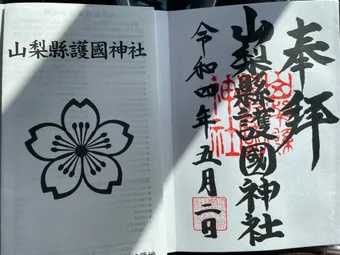 山梨縣護國神社
奉拝
山梨縣護國神社
令和四年五月二日